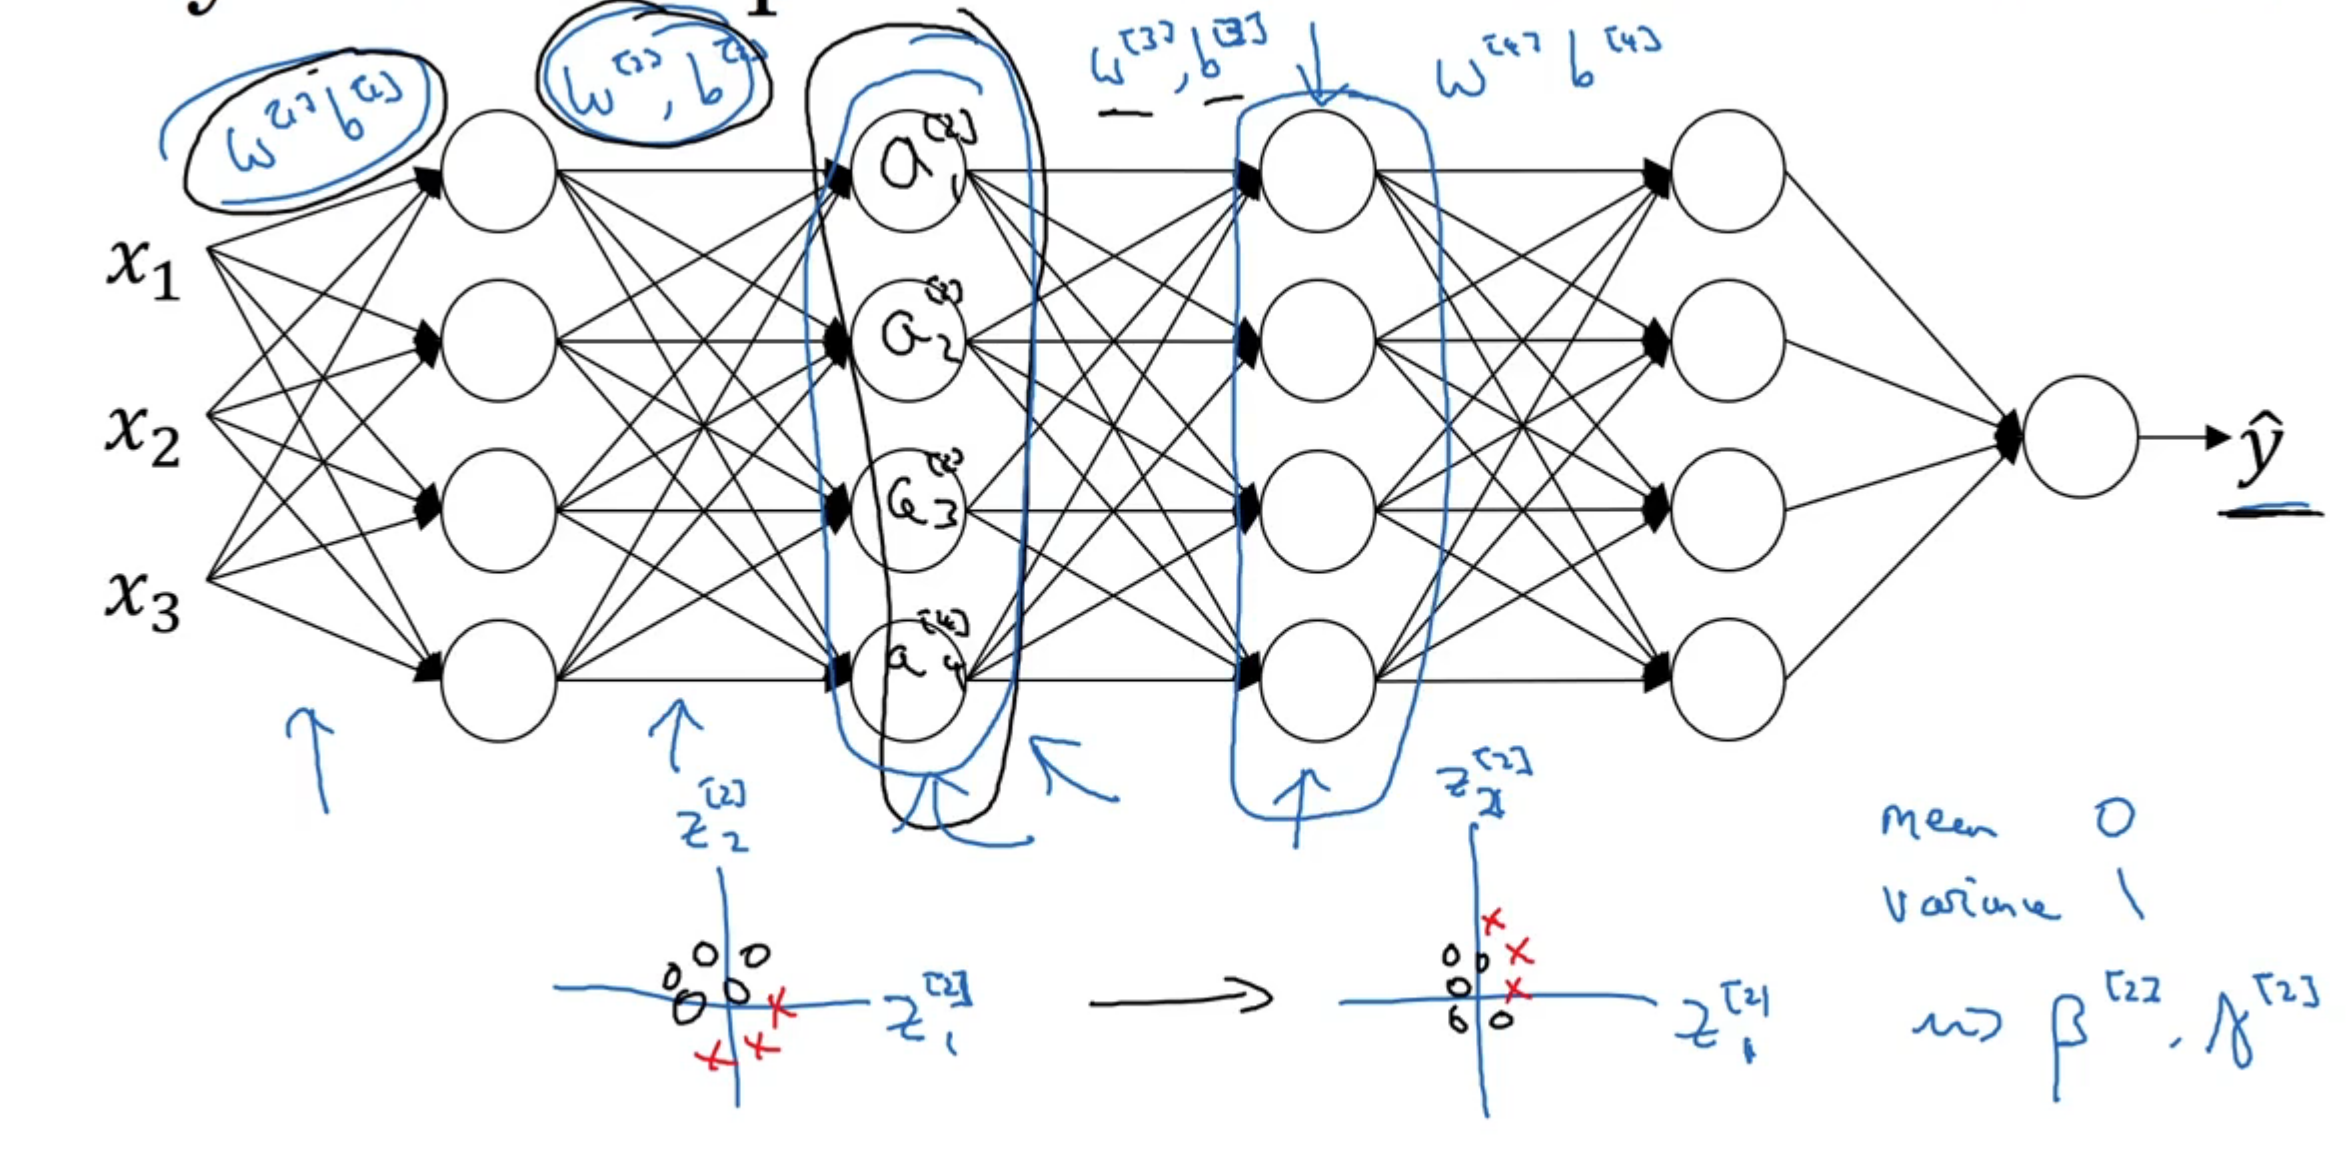 w[1] b[1]
w[2], b[2]
w[3], b[3]
w[4] b[4]
x1
x2
x3
a1[2]
a2[2]
a3[2]
a4[4]
ŷ
z2[2]
z1[2]
z[2]
z1[2]
mean 0
variance 1
β[2], γ[2]